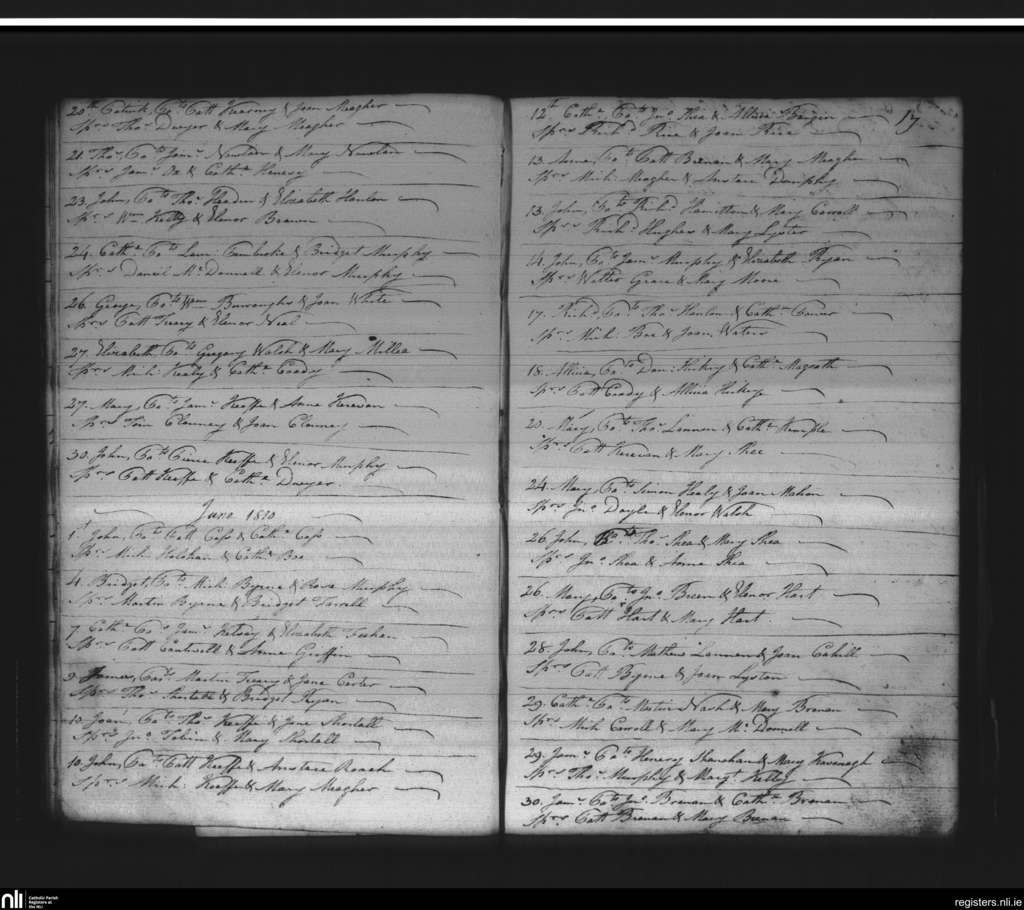 20th Patrick, Bo to Patt Kearney & Joan Meagher
Sprs Thos Dwyer & Mary Meagher
21. Thos, Bo to Jams Nowlan & Mary Nowlan
Sprs Jams & Cathn Henery
23. John, Bo to Thos Headen & Elizabeth Hanlon
Sprs Wm Kelly & Elenor Brawn
24. Cathn Bo to Laur: Pembroke & Bridget Murphy
Sprs Daniel McDonnell & Elenor Murphy
26. George, Bo to Wm Burroughs & Joan White
Sprs Patt Treacy & Elenor Neal
27. Elizabeth, Bo to Gregory Walsh & Mary Millea
Sprs Mich: Kealy & Cathn Coady
27. Mary, Bo to Jams Keeffe & Anne Kerevan
Sprs Tim Clanney & Joan Clanney
30. John, Bo to Pierce Keeffe & Elenor Murphy
Sprs Patt Keeffe & Cathn Dwyer.
June 1810
1st John, Bo to Patt Cass & Cathn Cass
Sprs Mich Holohan & Cathn Boe
4. Bridget, Bo to Mich: Byrne & Rose Murphy
Sprs Martin Byrne & Bridget Farrell
7 Cathn Bo to Jams & Elizabeth Feehan
Sprs Patt Cantwell & Anne Griffin
9. James, Bo to Martin Treacy & Jane Carter
Sprs Thos & Bridget Ryan
10. Joan, Bo to Thos Keeffe & Jane Shortall
Sprs Jno Tobin & Mary Shortall
10. John, Bo to Patt Keeffe & Anstace Roach
Sprs Mich: Keeffe & Mary Meagher
17
12th Cathn Bo to Jno Shea & Allicia
Sprs Richd Rice & Joan Rice
13. Anne, Bo to Patt Brenan & Mary Meagher
Sprs Mich: Meagher & Anstace Dunphy
13. John, Bo to Richd Hamilton & Mary Carroll
Sprs Richd Hughes & Mary Lyster
14. John, Bo to Jams Murphy & Elizabeth Ryan
Sprs Walter Grace & Mary Moore
17. Richd, Bo to Thos Hanlon & Cathn Connor
Sprs Mich: Boe & Joan Waters
18. Allicia, Bo to Dan: Hickey & Cathn Magrath
Sprs Patt Coady & Allicia Hickey
20. Mary, Bo to Thos Lannon & Cathn Kemple
Sprs Patt Kerevan & Mary Shee
24. Mary, Bo to Simon Healy & Joan Mahon
Sprs Jno Doyle & Elenor Walsh
26. John, Bo to Thos Shea & Mary Shea
Sprs Jno Shea & Anne Shea
26. Mary, Bo to Jno Breen & Elenor Hart
Sprs Patt Hart & Mary Hart.
28. John, Bo to Mathew Lannen & Joan Cahill
Sprs Patt Byrne & Joan Lyston
29. Cathn Bo to Martin Nash & Mary Brenan
Sprs Mich Carroll & Mary McDonnell
29. Jams Bo to Henery Shanahan & Mary Kavenagh
Sprs Thos Murphy & Margt Kelly
30. Jams Bo to Jno Brenan & Cathn Brenan
Sprs Patt Brenan & Mary Brenan
nli
Catholic Parish
Registers at
the NLI
registers.nli.ie